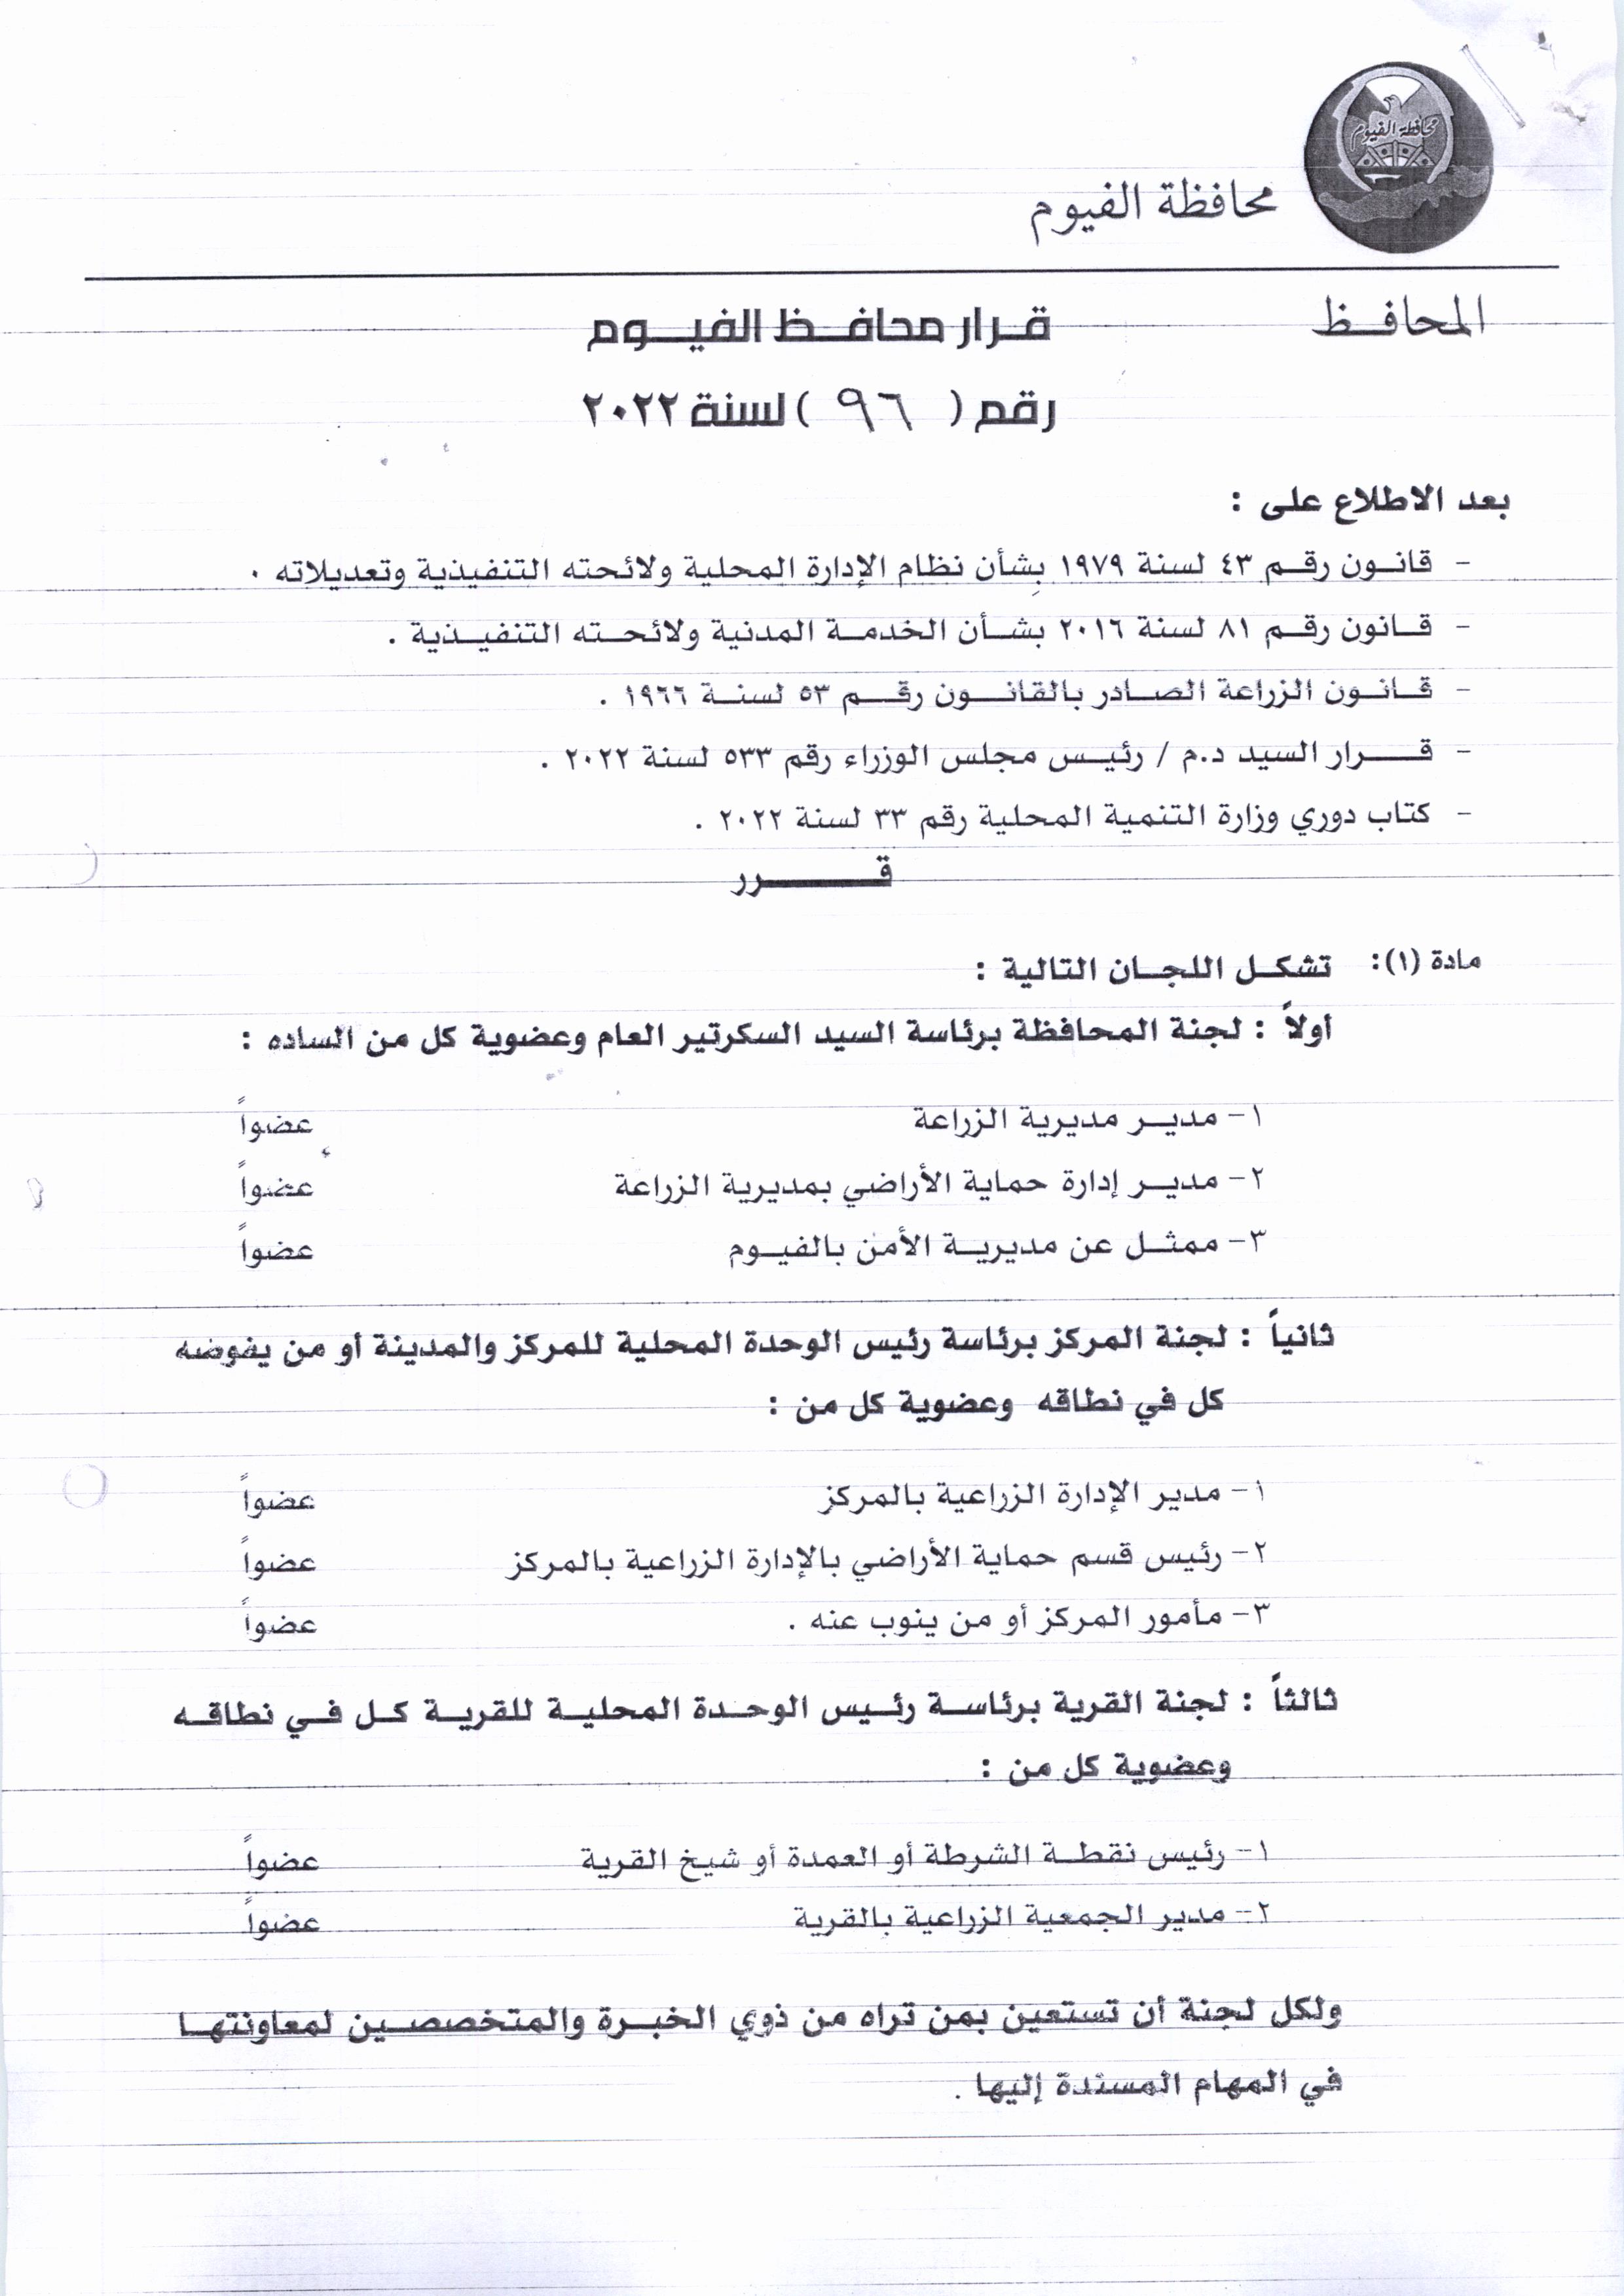 محافظة الفيوم
محافظة الفيوم
المحافـظ
قـرار محافـظ الفيـوم
رقم ( ٩٦ ) لسنة ٢٠٢٢
بعد الاطلاع على :
- قانون رقم ٤٣ لسنة ١٩٧٩ بشأن نظام الإدارة المحلية ولائحته التنفيذية وتعديلاته .
- قانون رقم ٨١ لسنة ٢٠١٦ بشأن الخدمة المدنية ولائحته التنفيذية .
- قانون الزراعة الصادر بالقانون رقم ٥٣ لسنة ١٩٦٦ .
- قرار السيد د.م / رئيس مجلس الوزراء رقم ٥٣٣ لسنة ٢٠٢٢ .
- كتاب دوري وزارة التنمية المحلية رقم ٣٣ لسنة ٢٠٢٢ .
قـــــرر
مادة (١): تشكل اللجان التالية :
أولاً : لجنة المحافظة برئاسة السيد السكرتير العام وعضوية كل من الساده :
١- مدير مديرية الزراعة عضواً
٢- مدير إدارة حماية الأراضي بمديرية الزراعة عضواً
٣- ممثل عن مديرية الأمن بالفيوم عضواً
ثانياً : لجنة المركز برئاسة رئيس الوحدة المحلية للمركز والمدينة أو من يفوضه
كل في نطاقه وعضوية كل من :
١- مدير الإدارة الزراعية بالمركز عضواً
٢- رئيس قسم حماية الأراضي بالإدارة الزراعية بالمركز عضواً
٣- مأمور المركز أو من ينوب عنه . عضواً
ثالثاً : لجنة القرية برئاسة رئيس الوحدة المحلية للقرية كل في نطاقه
وعضوية كل من :
١- رئيس نقطة الشرطة أو العمدة أو شيخ القرية عضواً
٢- مدير الجمعية الزراعية بالقرية عضواً
ولكل لجنة أن تستعين بمن تراه من ذوي الخبرة والمتخصصين لمعاونتها
في المهام المسندة إليها .